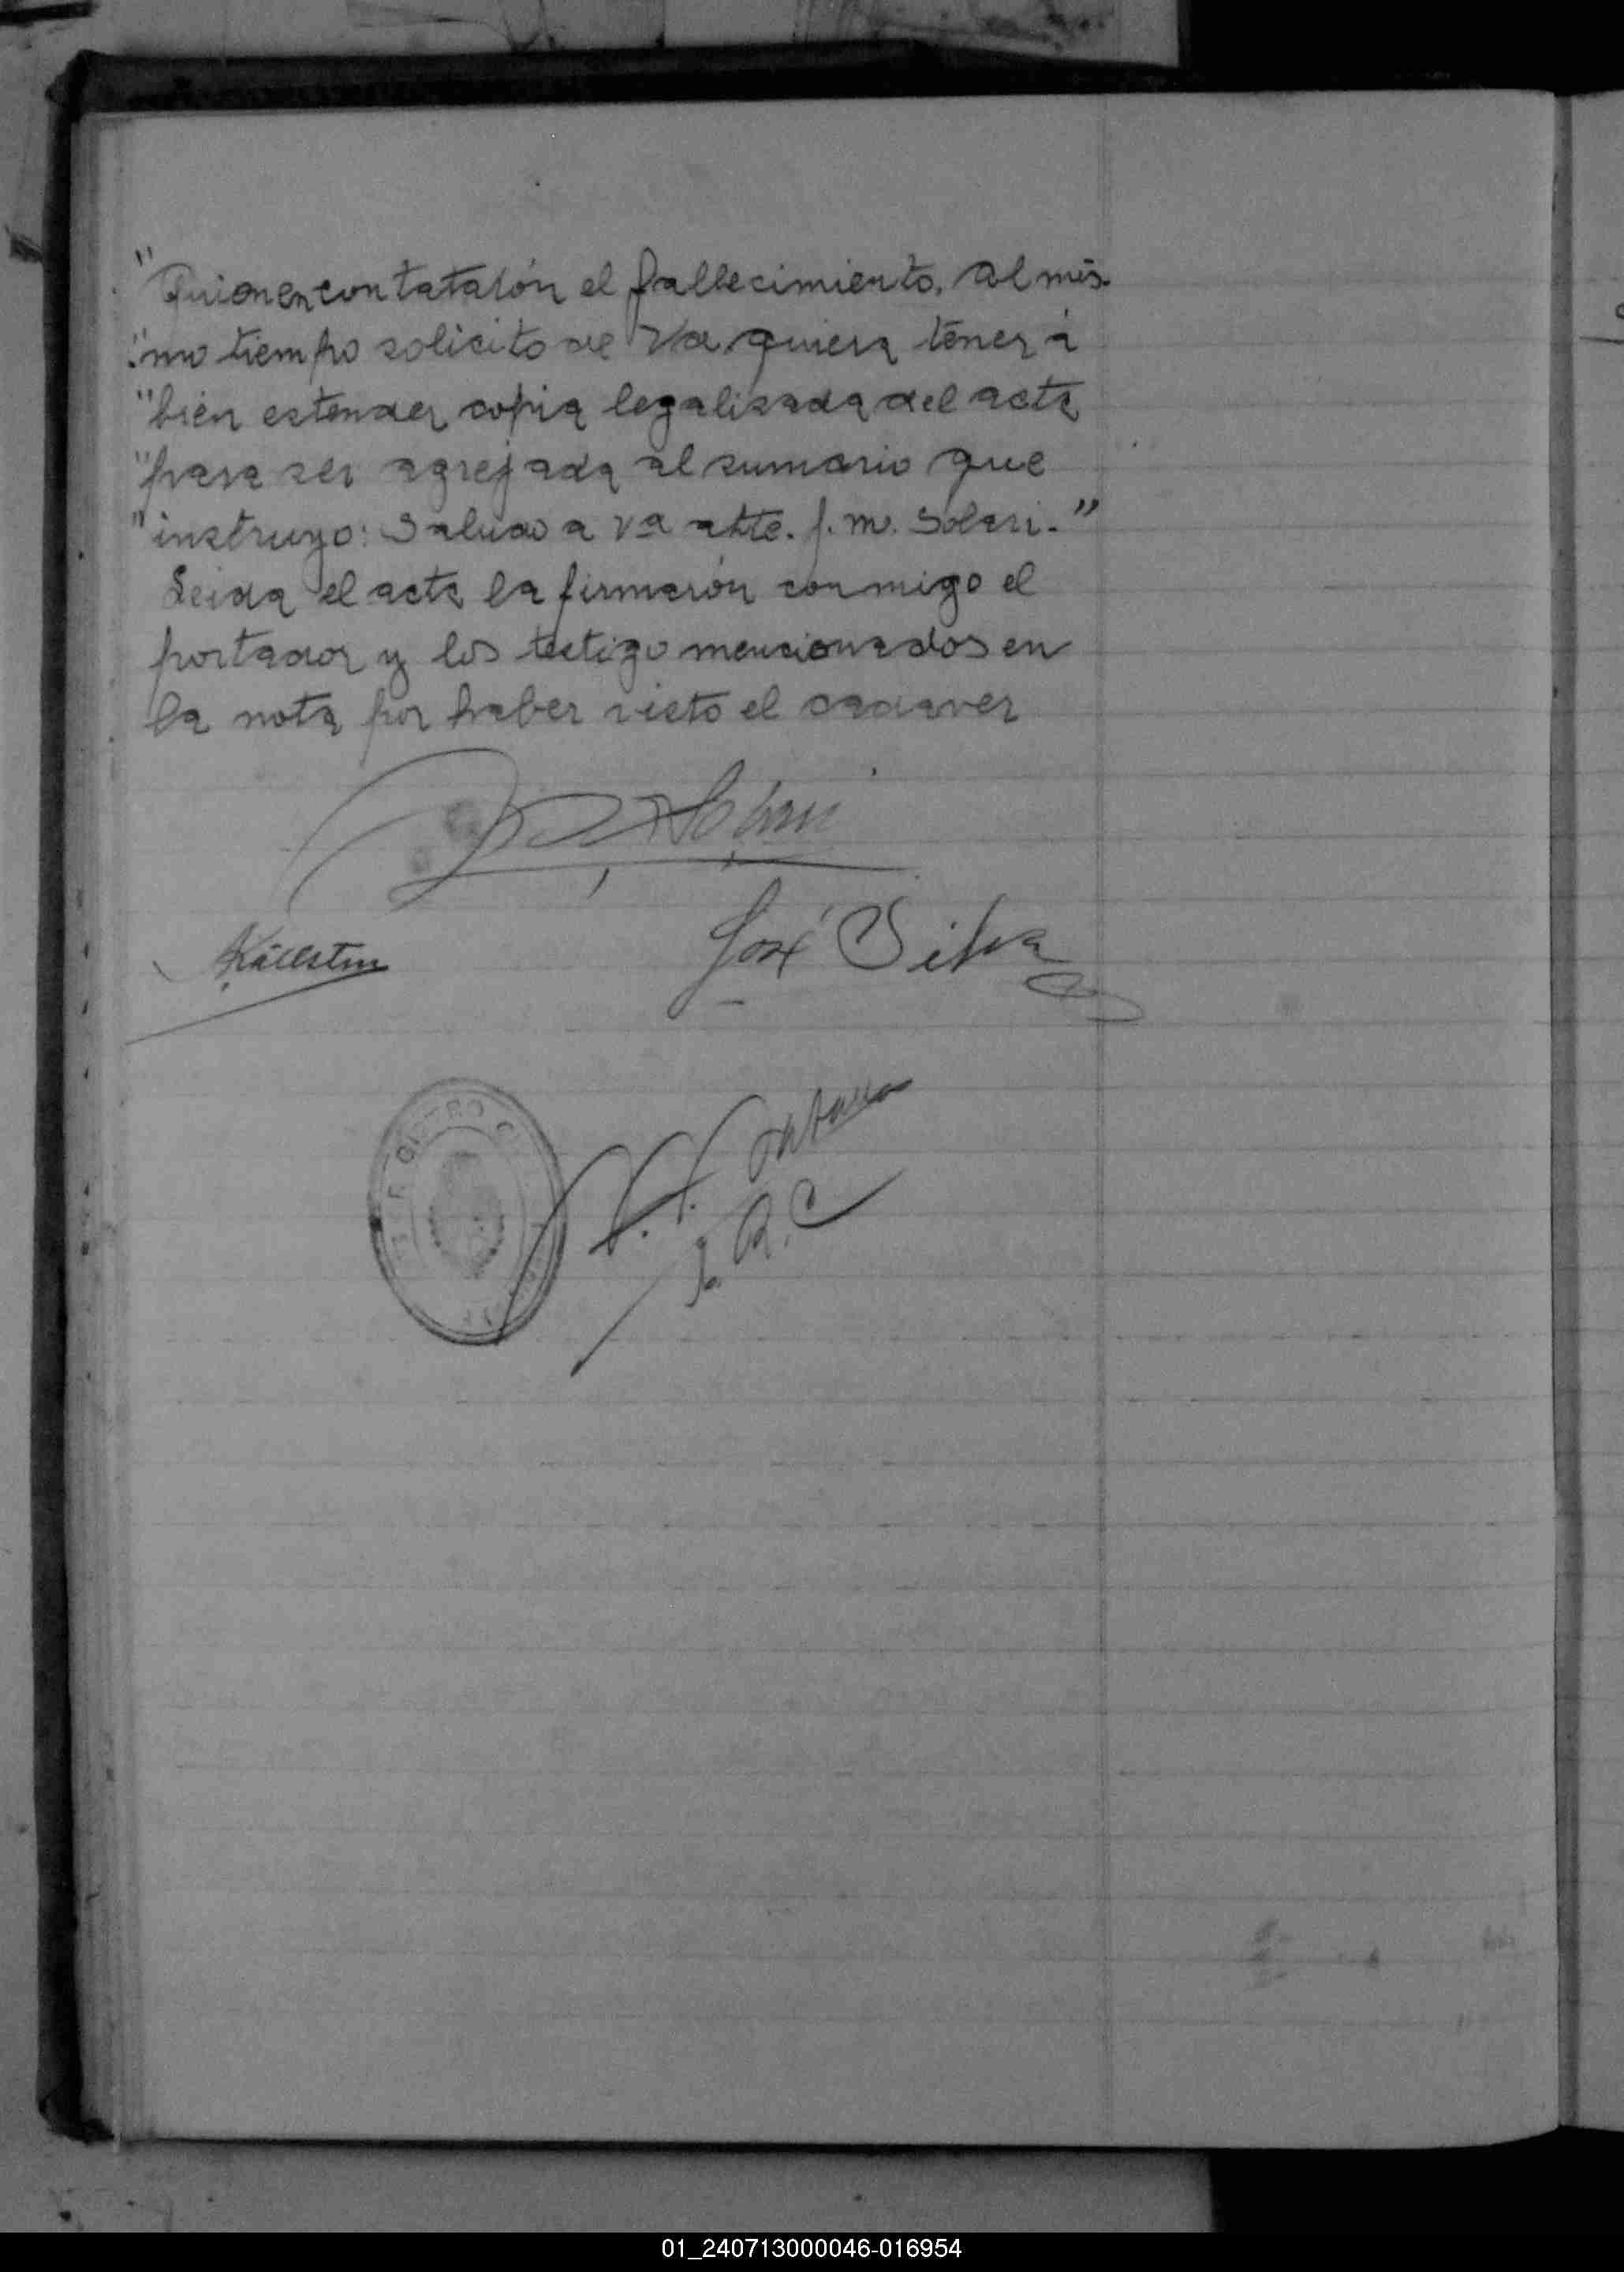 "Quienen contatarón el fallecimiento. Al mis-
"mo tiempo solicito de Vd quiera tener á
"bien estender copia legalizada del acta
"para ser agrejada al sumario que
"instruyo: Saludo a Vd atte. J. M. Solari."
Leida el acta la firmarón conmigo el
portador y los testigo mencionados en
la nota por haber visto el cadaver
Solari
Källsten
José Silva
REGISTRO
J. R. C
01_240713000046-016954